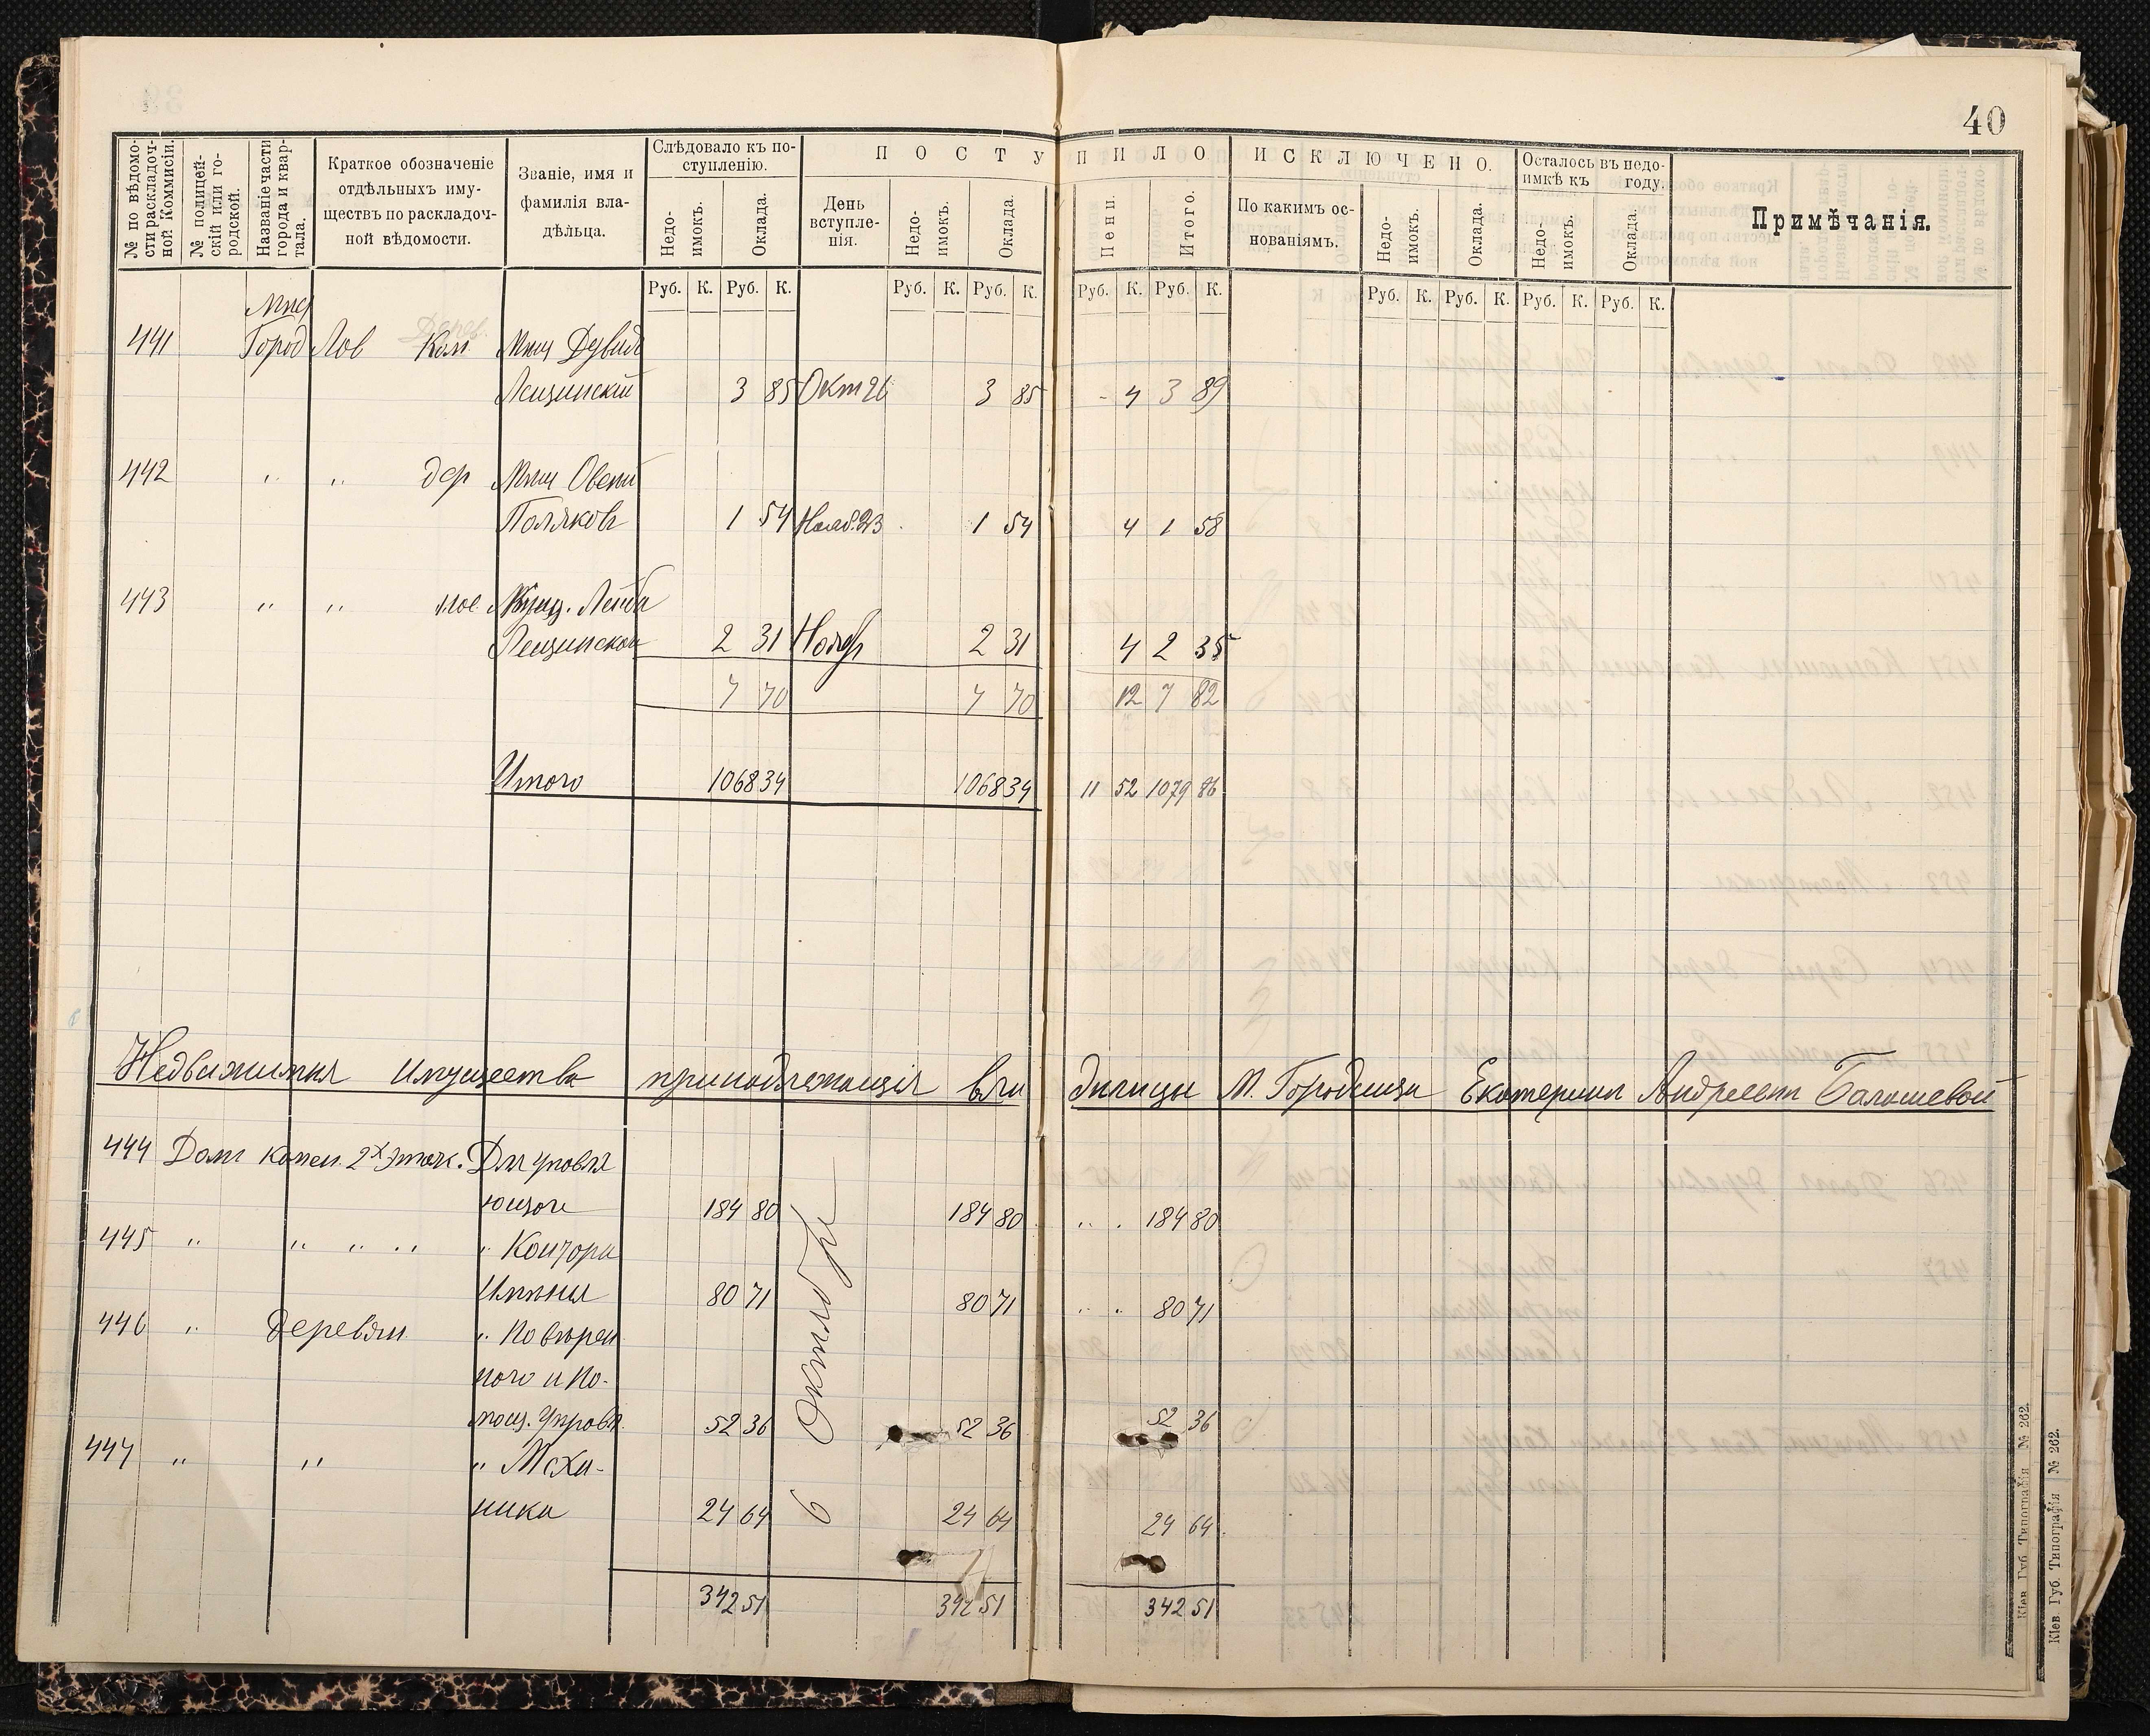 40
№ по вѣдомо-
сти раскладоч-
ной Коммисіи.
№ полицей-
скій или го-
родской.
Названіе части
города и квар-
тала.
Краткое обозначеніе
отдѣльныхъ иму-
ществъ по раскладоч-
ной вѣдомости.
Званіе, имя и
фамилія вла-
дѣльца.
Слѣдовало къ по-
ступленію.
Недо-
имокъ.
Оклада.
ПОСТУПИЛО
День
вступле-
нія.
Недо-
имокъ.
Оклада.
Пени.
Итого.
ИСКЛЮЧЕНО.
По какимъ ос-
нованіямъ.
Недо-
имокъ.
Оклада.
Осталось въ недо-
имкѣ къ году.
Недо-
имокъ.
Оклада.
Примѣчанія.
Руб. К. Руб. К. Руб. К. Руб. К. Руб. К. Руб. К. Руб. К. Руб. К. Руб. К. Руб. К.
441 Город Лов Кам. Мѣщ Дувидъ
Лещинскій 3 85 Окт 26 3 85 - 4 3 89
442 " " дер Мѣщ Овсей
Поляковъ 1 54 Нояб. 23 1 54 4 1 58
443 " " Купц. Лейба
Лещинской 2 31 Ноябр 2 31 4 2 35
7 70 7 70 12 7 82
Итого 1068 34 1068 34 11 52 1079 86
Недвижимыя имущества принадлежащія владѣлицы М. Городища Екатерины Андреевны Балашевой
444 Домъ камен. 2х этаж. Для управля
ющаго 184 80 184 80 " " 184 80
445 " " " " " Конторы
Имѣнія 80 71 80 71 " " 80 71
446 " деревян. " Повѣрен
ного и По-
мощ. Управл. 52 36 52 36 52 36
447 " " " Меха-
ника 24 64 24 64 24 64
6 Октября
342 51 342 51 342 51
Кіев. Губ. Типографія № 262.
Кіев. Губ. Типографія № 262.